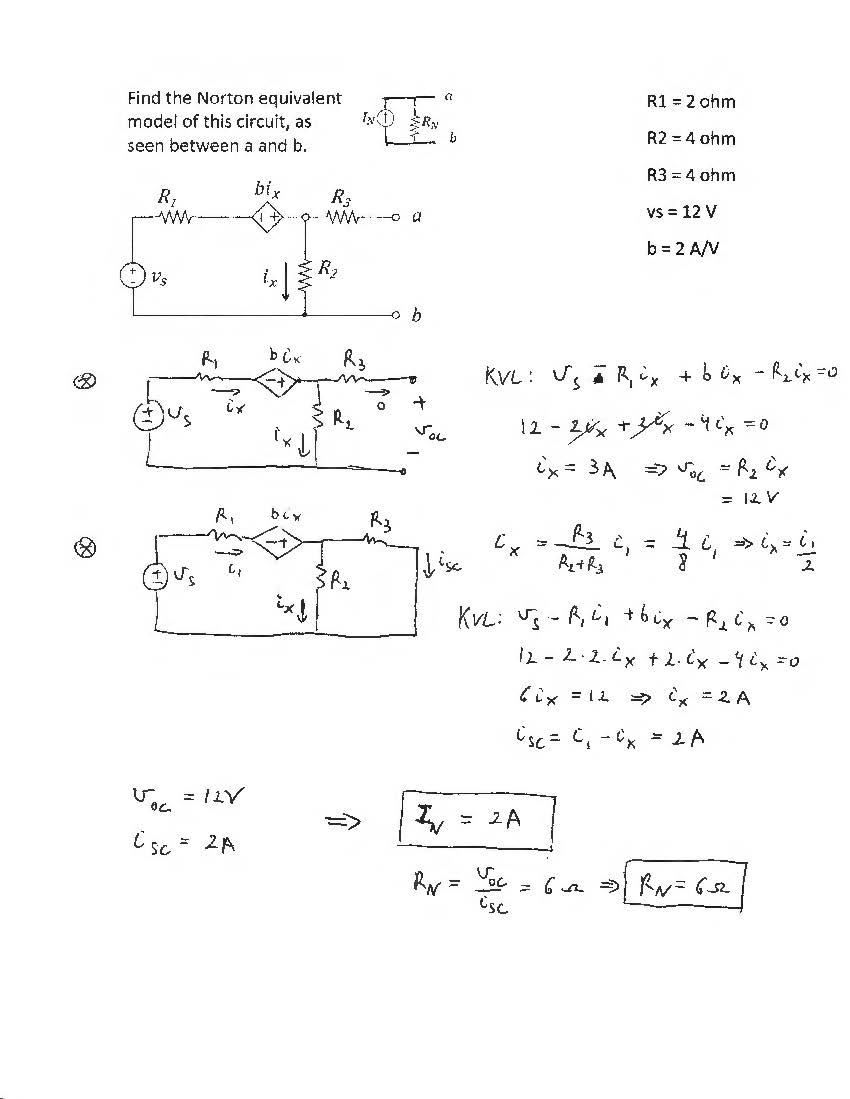 Find the Norton equivalent
model of this circuit, as
seen between a and b.
a
I_N
R_N
b
R1 = 2 ohm
R2 = 4 ohm
R3 = 4 ohm
vs = 12 V
b = 2 A/V
R_1
bi_x
R_3
a
v_s
i_x
R_2
b
R_1 b i_x R_3
υ_s i_x i_x R_2 0 + υ_oc −
KVL: υ_s − R_1 i_x + b i_x − R_2 i_x = 0
12 − 2i_x + 2i_x − 4 i_x = 0
i_x = 3A ⇒ υ_oc = R_2 i_x
= 12 V
R_1 b i_x R_3
υ_s i_1 i_x R_2 i_sc
i_x = R_3/(R_2+R_3) i_1 = 4/8 i_1 ⇒ i_x = i_1/2
KVL: υ_s − R_1 i_1 + b i_x − R_2 i_x = 0
12 − 2·2·i_x + 2·i_x − 4 i_x = 0
6 i_x = 12 ⇒ i_x = 2 A
i_sc = i_1 − i_x = 2 A
υ_oc = 12V
i_sc = 2A
⇒ I_N = 2A
R_N = υ_oc/i_sc = 6 Ω ⇒ R_N = 6Ω